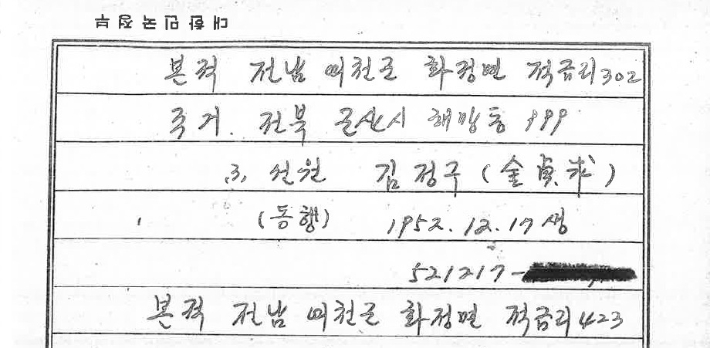 본적 전남 여천군 화정면 적금리 302
주거. 전북 군산시 해망동 999
3. 선원 김정구 (金貞求)
(동행) 1952. 12. 17 생
521217-
본적 전남 여천군 화정면 적금리 423